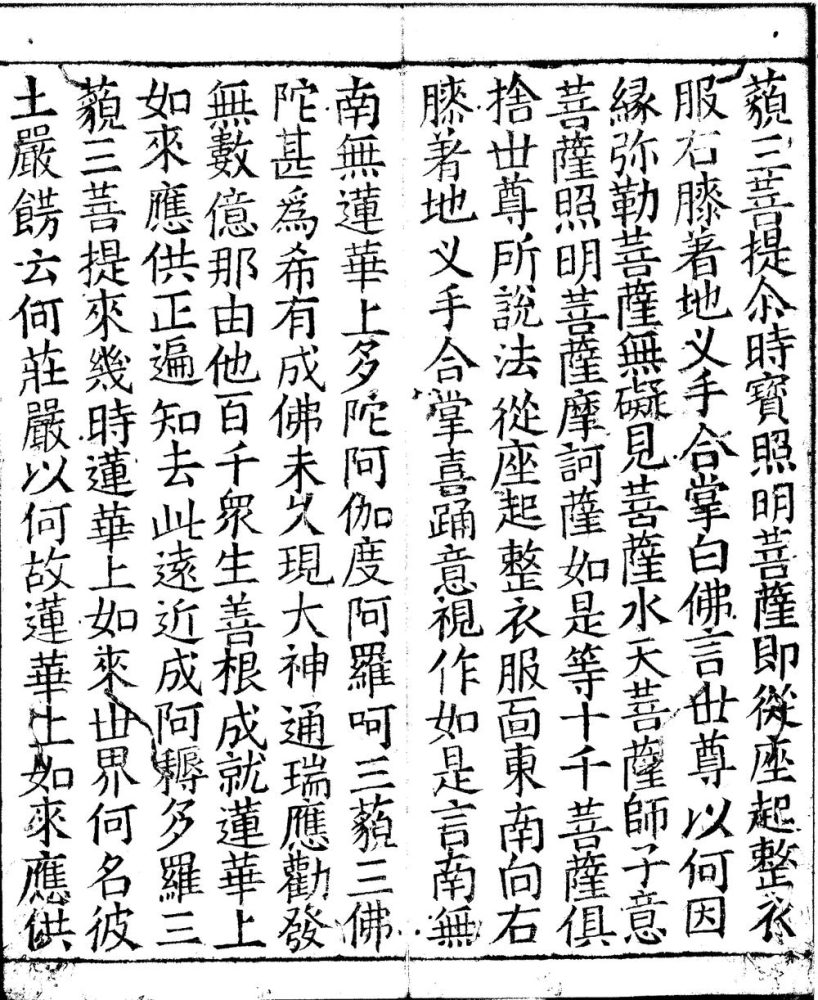 藐三菩提尒時寶照明菩薩即從座起整衣
服右膝著地义手合掌白佛言世尊以何因
緣弥勒菩薩無礙見菩薩水天菩薩師子意
菩薩照明菩薩摩訶薩如是等十千菩薩俱
捨世尊所說法從座起整衣服面東南向右
膝著地义手合掌喜踊意視作如是言南無
南無蓮華上多陀阿伽度阿羅呵三藐三佛
陀甚爲希有成佛未久現大神通瑞應勸發
無數億那由他百千衆生善根成就蓮華上
如來應供正遍知去此遠近成阿耨多羅三
藐三菩提來幾時蓮華上如來世界何名彼
土嚴餝云何莊嚴以何故蓮華上如來應供